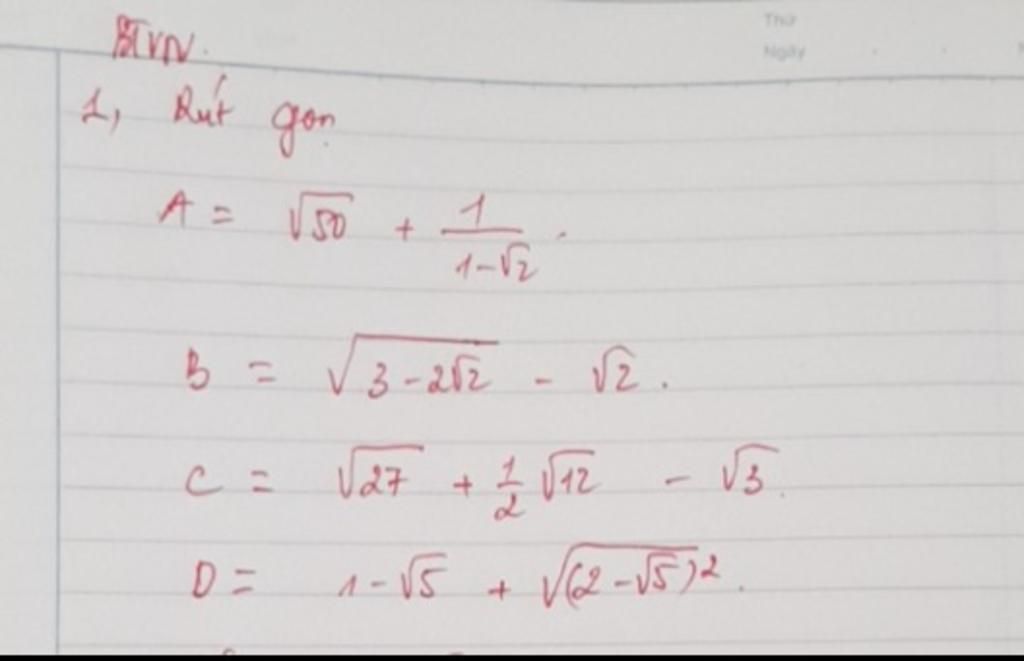 Thứ
Ngày
BTVN.
1, Rút gọn
A = √50 + 1/(1-√2).
B = √(3-2√2) - √2.
C = √27 + 1/2 √12 - √3.
D = 1-√5 + √((2-√5)²).